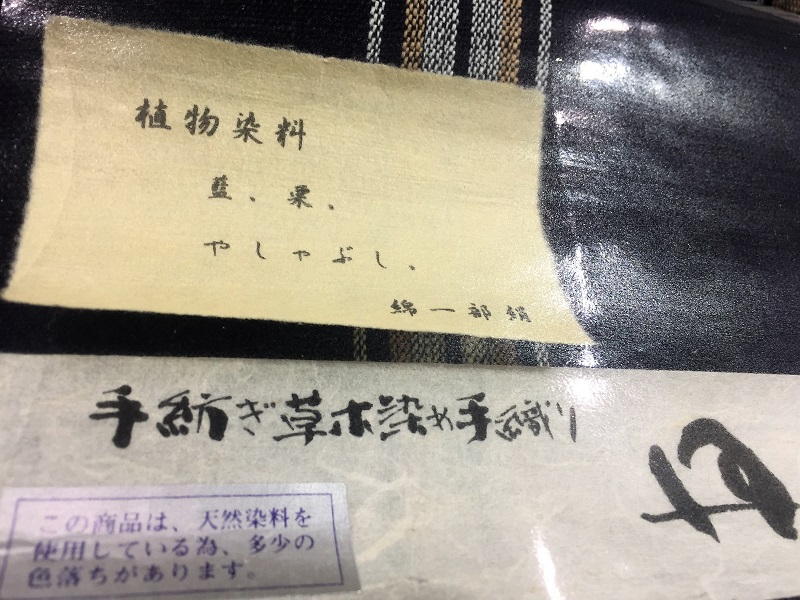 植物染料
藍、栗、
やしゃぶし、
綿一部絹
手紡ぎ草木染め手織り
この商品は、天然染料を
使用している為、多少の
色落ちがあります。